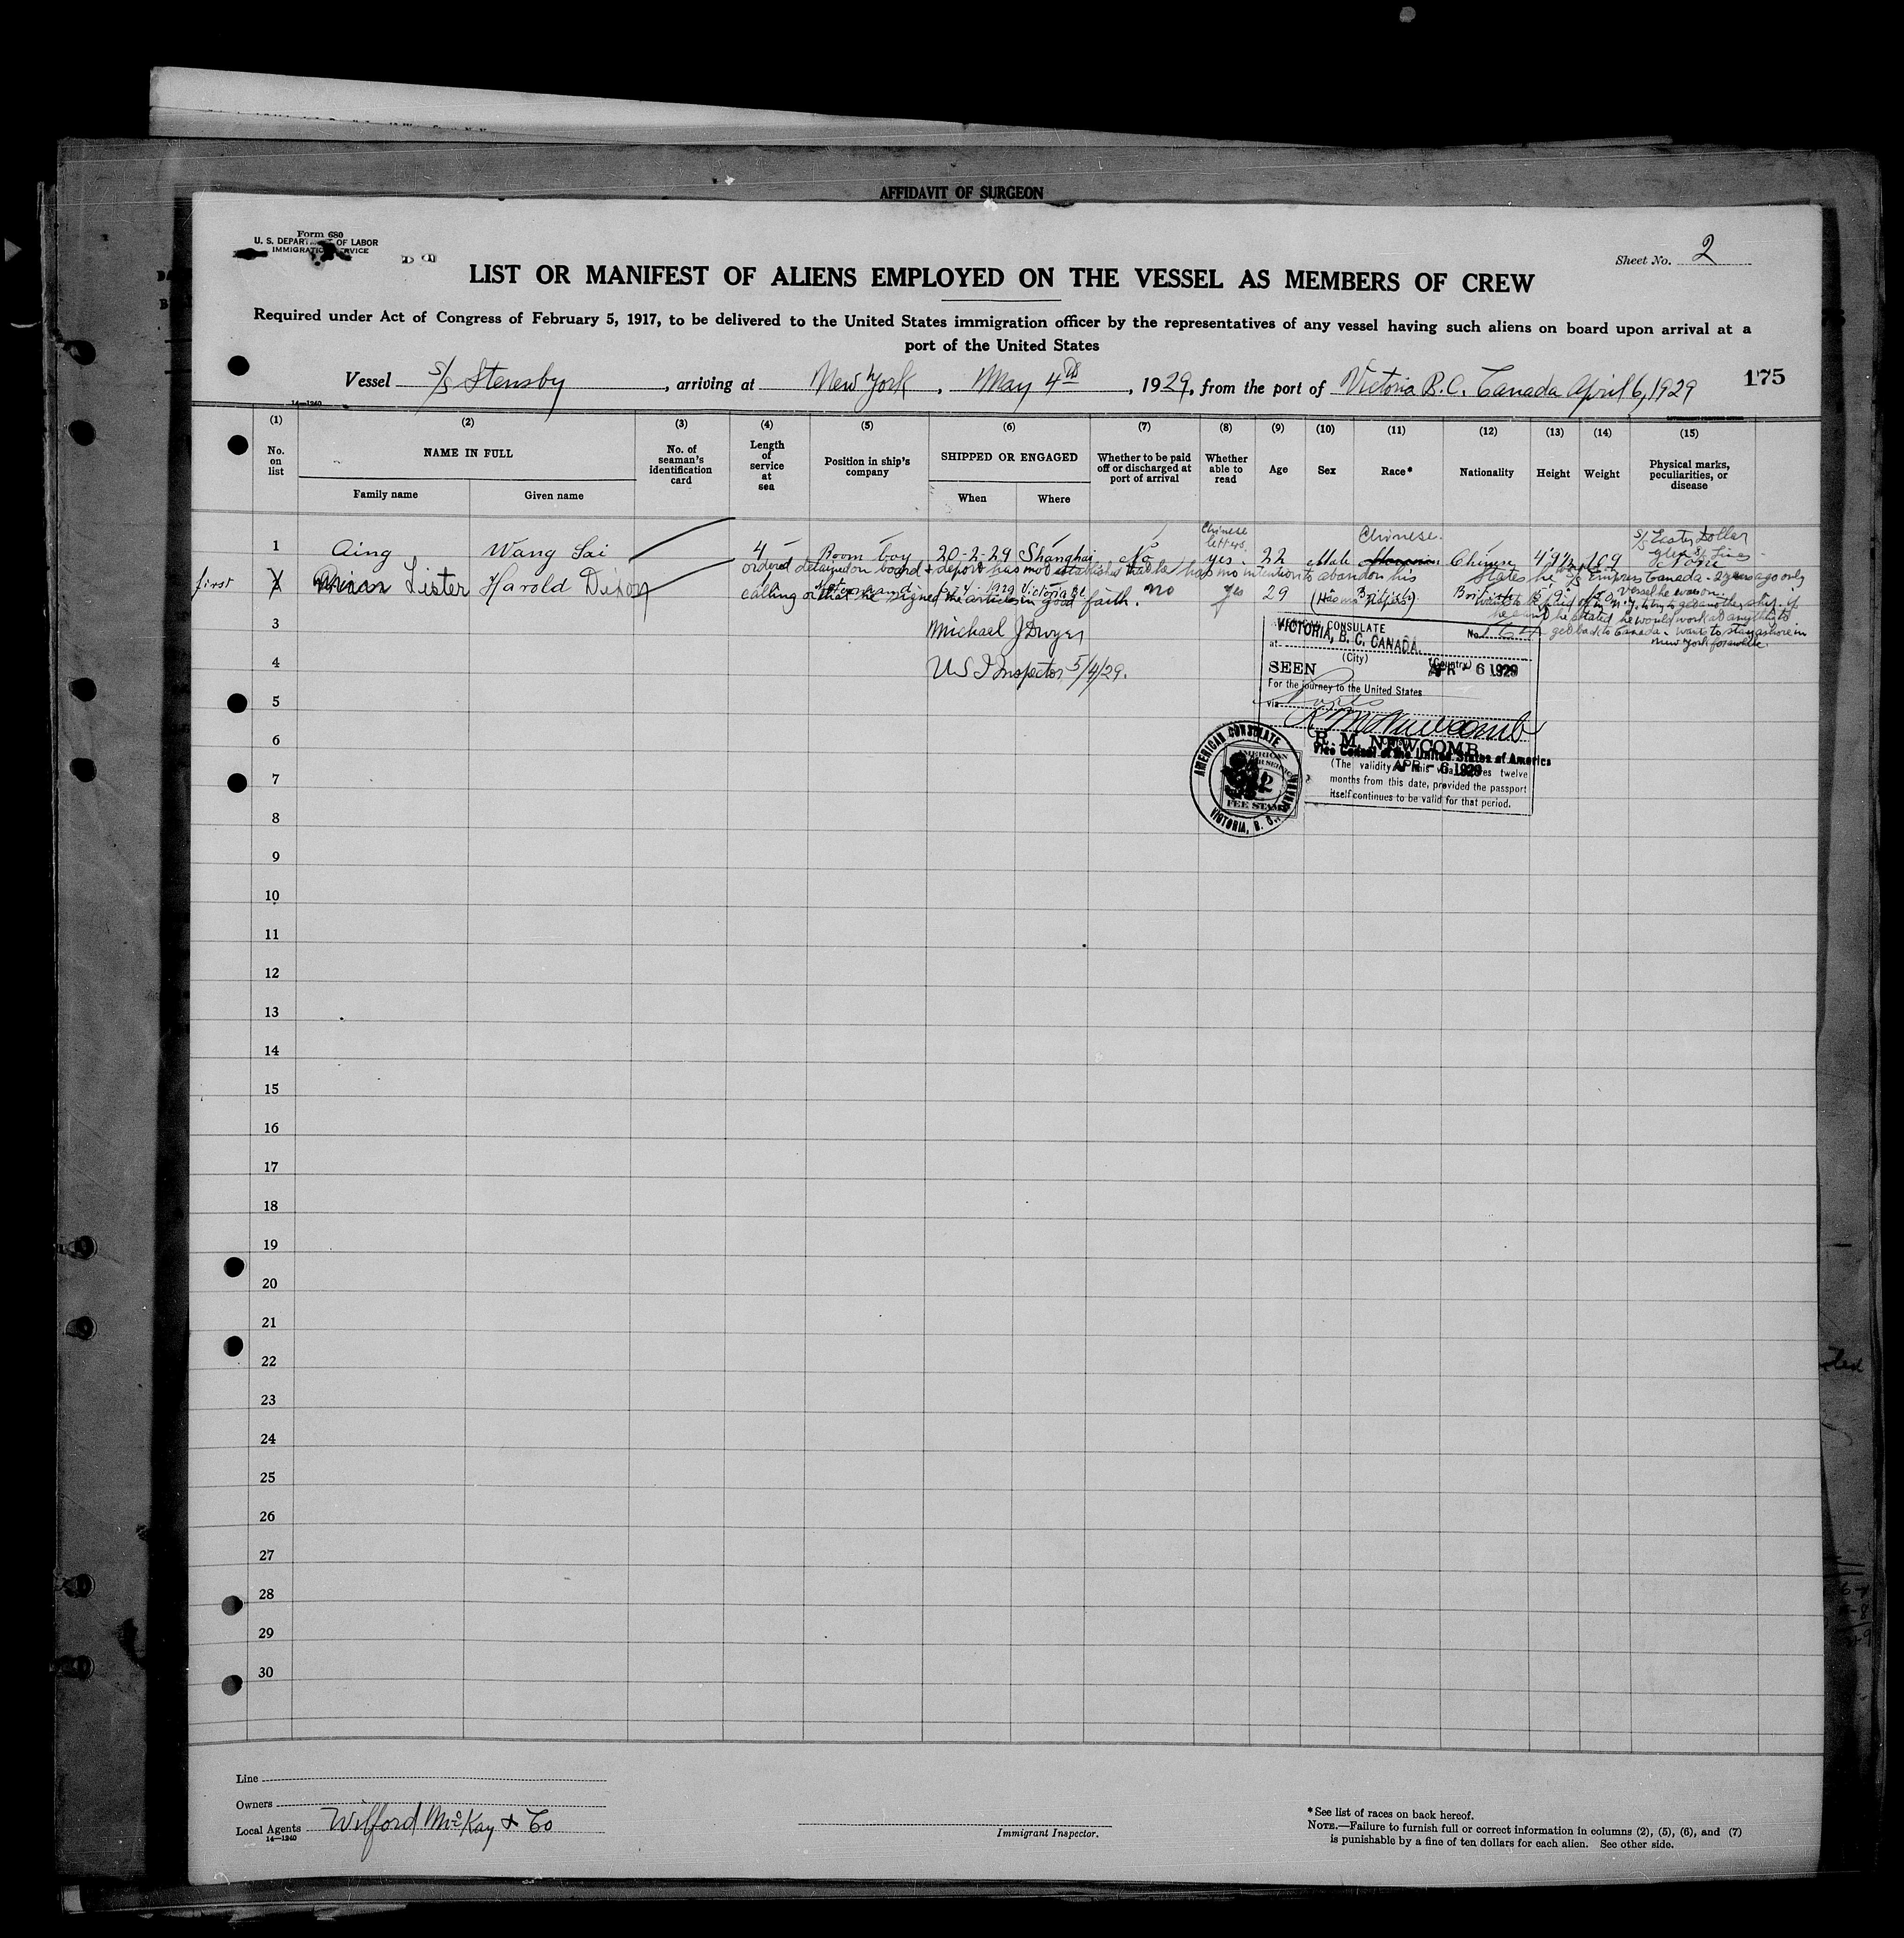 AFFIDAVIT OF SURGEON
Form 680
U. S. DEPARTMENT OF LABOR
IMMIGRATION SERVICE
Sheet No. 2
LIST OR MANIFEST OF ALIENS EMPLOYED ON THE VESSEL AS MEMBERS OF CREW
Required under Act of Congress of February 5, 1917, to be delivered to the United States immigration officer by the representatives of any vessel having such aliens on board upon arrival at a
port of the United States
Vessel S/S Stensby, arriving at New York, May 4th, 1929, from the port of Victoria B.C. Canada April 6, 1929
175
14—1240
(1) (2) (3) (4) (5) (6) (7) (8) (9) (10) (11) (12) (13) (14) (15)
No. on list
NAME IN FULL
Family name
Given name
No. of seaman's identification card
Length of service at sea
Position in ship's company
SHIPPED OR ENGAGED
When
Where
Whether to be paid off or discharged at port of arrival
Whether able to read
Age
Sex
Race*
Nationality
Height
Weight
Physical marks, peculiarities, or disease
Chinese letters
Chinese.
S/S Lister Dollar
1 Aing Wang Sai 4 Room boy 20-2-29 Shanghai No yes 22 Male Chinese 169
ordered detained on board & deport has not established that he has no intention to abandon his
states he S/S Empress Canada - 2 years ago only
vessel he was on.
first 2 Lister Harold Dixon Victoria BC no yes 29 British British
calling or that he signed the articles in good faith.
he stated he would work at anything to
get back to Canada - want to stay ashore in
New York for awhile.
3 Michael J Dwyer
4 US I Inspector 5/4/29.
AMERICAN CONSULATE
VICTORIA, B. C. CANADA.
at
No. 164
(City)
(Country)
SEEN
APR - 6 1929
For the journey to the United States
via
R. M. NEWCOMB
Vice Consul of the United States of America
APR - 6 1929
(The validity of this visa expires twelve
months from this date, provided the passport
itself continues to be valid for that period.
AMERICAN CONSULATE
VICTORIA, B. C.,
AMERICAN
2
FEE STAMP
5
6
7
8
9
10
11
12
13
14
15
16
17
18
19
20
21
22
23
24
25
26
27
28
29
30
Line
Owners
Local Agents Wilford McKay & Co
14—1240
Immigrant Inspector.
*See list of races on back hereof.
NOTE.—Failure to furnish full or correct information in columns (2), (5), (6), and (7)
is punishable by a fine of ten dollars for each alien. See other side.